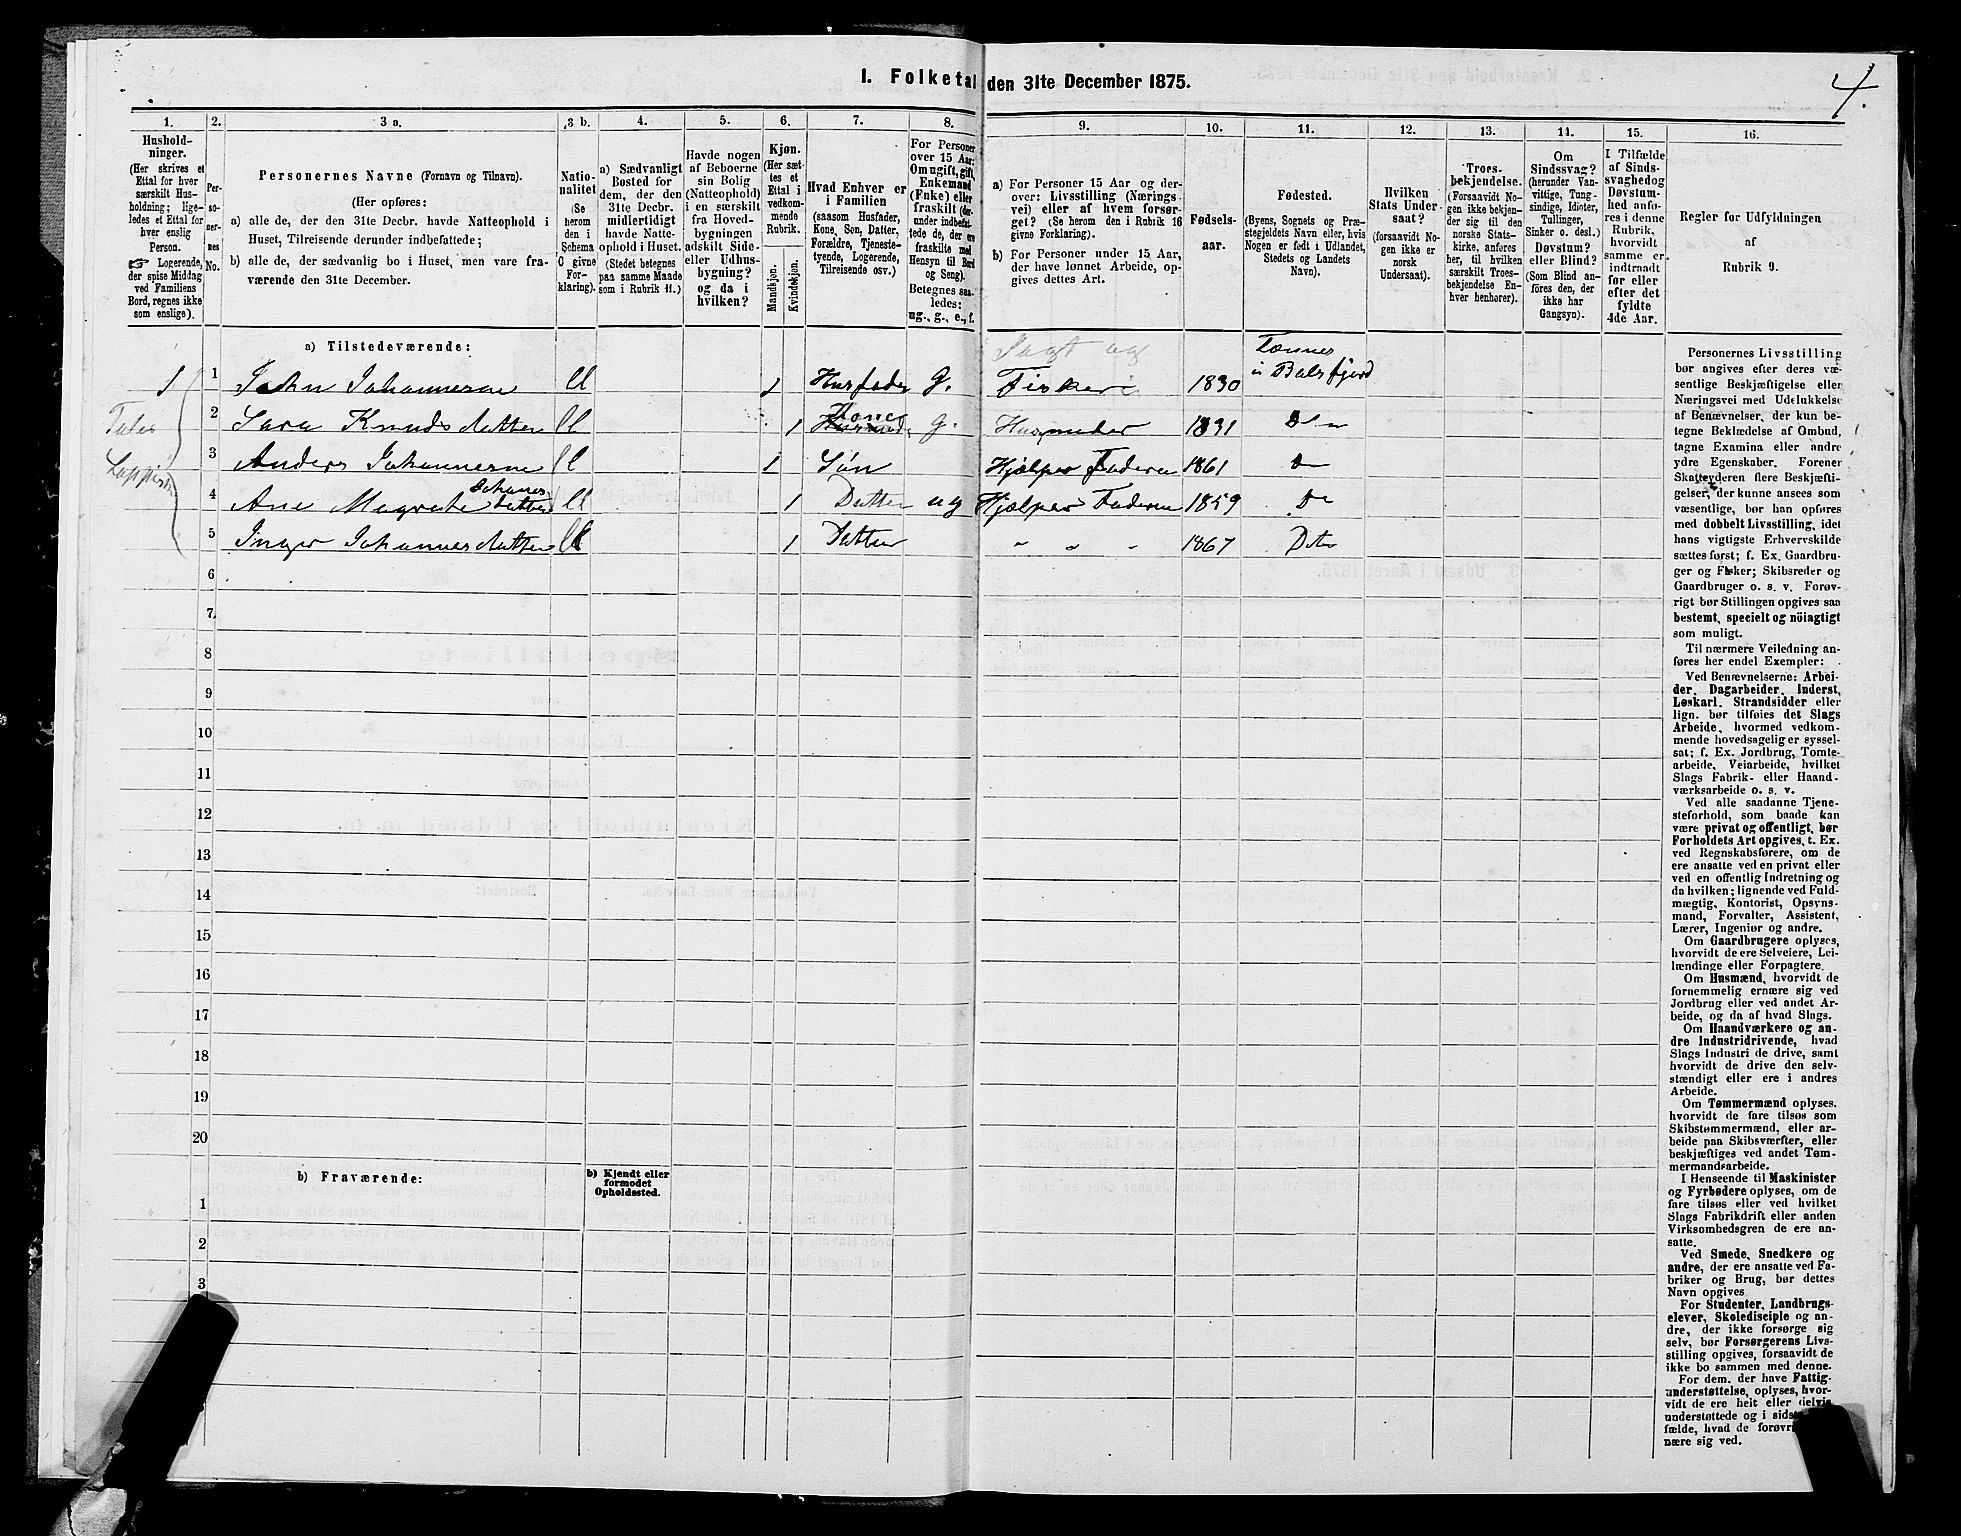 I. Folketal den 31te December 1875.
4.
1. 2. 3 a. 3 b. 4. 5. 6. 7. 8. 9. 10. 11. 12. 13. 14. 15. 16.
Hushold-
ninger.
(Her skrives et
Ettal for hver
særskilt Hus-
holdning; lige-
ledes et Ettal for
hver enslig
Person.
☞ Logerende,
der spise Middag
ved Familiens
Bord, regnes ikke
som enslige).
Per-
so-
ner-
nes
No.
Personernes Navne (Fornavn og Tilnavn).
(Her opføres:
a) alle de, der den 31te Decbr. havde Natteophold i
Huset, Tilreisende derunder indbefattede;
b) alle de, der sædvanlig bo i Huset, men vare fra-
værende den 31te December.
Natio-
nalitet
(Se
herom
den i
Schema
C givne
For-
klaring).
a) Sædvanligt
Bosted for
dem, der den
31te Decbr.
midlertidigt
havde Natte-
ophold i Huset.
(Stedet betegnes
paa samme Maade
som i Rubrik 11.)
Havde nogen
af Beboerne
sin Bolig
(Natteophold)
i en særskilt
fra Hoved-
bygningen
adskilt Side-
eller Udhus-
bygning?
og da i
hvilken?
Kjøn.
(Her sæt-
tes et
Ettal i
vedkom-
mende
Rubrik.
Mandkjøn.
Kvindekjøn.
Hvad Enhver er
i Familien
(saasom Husfader,
Kone, Søn, Datter,
Forældre, Tjeneste-
tyende, Logerende,
Tilreisende osv.)
For Personer
over 15 Aar:
Om ugift, gift,
Enkemand
(Enke) eller
fraskilt (der-
under indbefat-
tede de, der ere
fraskilte med
Hensyn til Bord
og Seng).
Betegnes saa-
ledes:
ug., g., e., f.
a) For Personer 15 Aar og der-
over: Livsstilling (Nærings-
vei) eller af hvem forsør-
get? (Se herom den i Rubrik 16
givne Forklaring).
b) For Personer under 15 Aar,
der have lønnet Arbeide, op-
gives dettes Art.
Fødsels-
aar.
Fødested.
(Byens, Sognets og Præ-
stegjeldets Navn eller, hvis
Nogen er født i Udlandet,
Stedets og Landets
Navn).
Hvilken
Stats Under-
saat?
(forsaavidt No-
gen ikke er
norsk
Undersaat).
Troes-
bekjendelse.
(Forsaavidt No-
gen ikke bekjen-
der sig til den
norske Stats-
kirke, anføres
her, til hvilken
særskilt Troes-
bekjendelse En-
hver henhører).
Om
Sindssvag?
(herunder Van-
vittige, Tung-
sindige, Idioter,
Tullinger,
Sinker o. desl.)
Døvstum?
eller Blind?
(Som Blind an-
føres den, der
ikke har
Gangsyn).
I Tilfælde
af Sinds-
svaghedog
Døvstum-
hed anfø-
res i denne
Rubrik,
hvorvidt
samme er
indtraadt
før eller
efter det
fyldte
4de Aar.
Regler for Udfyldningen
af
Rubrik 9.
a) Tilstedeværende:
Jagt og Tønnes
1 1 John Johannesne ll 1 Husfader G. Fisker 1830 i Balsfjord
Tales 2 Sara Knudsdatter ll 1 Kone g. Husmoder 1831 D
Lappisk 3 Anders Johannesne ll 1 Søn Hjælper Faderen 1861 D
4 Ane Magrete Johanesdatter ll 1 Datter ug Hjælper Faderen 1859 Do
5 Inger Johannesdatter ll 1 Datter " " " 1867 Dito
6
7
8
9
10
11
12
13
14
15
16
17
18
19
20
b) Fraværende:
b) Kjendt eller
formodet
Opholdssted.
1
2
3
Personernes Livsstilling
bør angives efter deres væ-
sentlige Beskjæftigelse eller
Næringsvei med Udelukkelse
af Benævnelser, der kun be-
tegne Beklædelse af Ombud,
tagne Examina eller andre
ydre Egenskaber. Forener
Skatteyderen flere Beskjæfti-
gelser, der kunne ansees som
væsentlige, bør han opføres
med dobbelt Livsstilling, idet
hans vigtigste Erhvervskilde
sættes først; f. Ex. Gaardbru-
ger og Fisker; Skibsreder og
Gaardbruger o. s. v. Forøv-
rigt bør Stillingen opgives saa
bestemt, specielt og nöiagtigt
som muligt.
Til nærmere Veiledning an-
føres her endel Exempler:
Ved Benævnelserne: Arbei-
der, Dagarbeider, Inderst,
Løskarl, Strandsidder eller
lign. bør tilføies det Slags
Arbeide, hvormed vedkom-
mende hovedsagelig er syssel-
sat; f. Ex. Jordbrug, Tomte-
arbeide, Veiarbeide, hvilket
Slags Fabrik- eller Haand-
værksarbeide o. s. v.
Ved alle saadanne Tjene-
steforhold, som baade kan
være privat og offentligt, bør
Forholdets Art opgives, t. Ex.
ved Regnskabsførere, om de
ere ansatte ved en privat eller
ved en offentlig Indretning og
da hvilken; lignende ved Fuld-
mægtig, Kontorist, Opsyns-
mand, Forvalter, Assistent,
Lærer, Ingeniør og andre.
Om Gaardbrugere oplyses,
hvorvidt de ere Selveiere, Lei-
lændinge eller Forpagtere.
Om Husmænd, hvorvidt de
fornemmelig ernære sig ved
Jordbrug eller ved andet Ar-
beide, og da af hvad Slags.
Om Haandværkere og an-
dre Industridrivende, hvad
Slags Industri de drive, samt
hvorvidt de drive den selv-
stændigt eller ere i andres
Arbeide.
Om Tømmermænd oplyses.
hvorvidt de fare tilsøs som
Skibstømmermænd, eller ar-
beide paa Skibsværfter, eller
beskjæftiges ved andet Tøm-
mermandsarbeide.
I Henseende til Maskinister
og Fyrbødere oplyses, om de
fare tilsøs eller ved hvilket
Slags Fabrikdrift eller anden
Virksomhedsgren de ere an-
satte.
Ved Smede, Snedkere og
andre, der ere ansatte ved Fa-
briker og Brug, bør dettes
Navn opgives
For Studenter, Landbrugs-
elever, Skoledisciple og an-
dre, der ikke forsørge sig
selv, bør Forsørgerens Livs-
stilling opgives, forsaavidt de
ikke bo sammen med denne.
For dem, der have Fattig-
understøttelse, oplyses, hvor-
vidt de ere helt eller delvis
understøttede og i sidst
fælde, hvad de forøvr
nære sig ved.